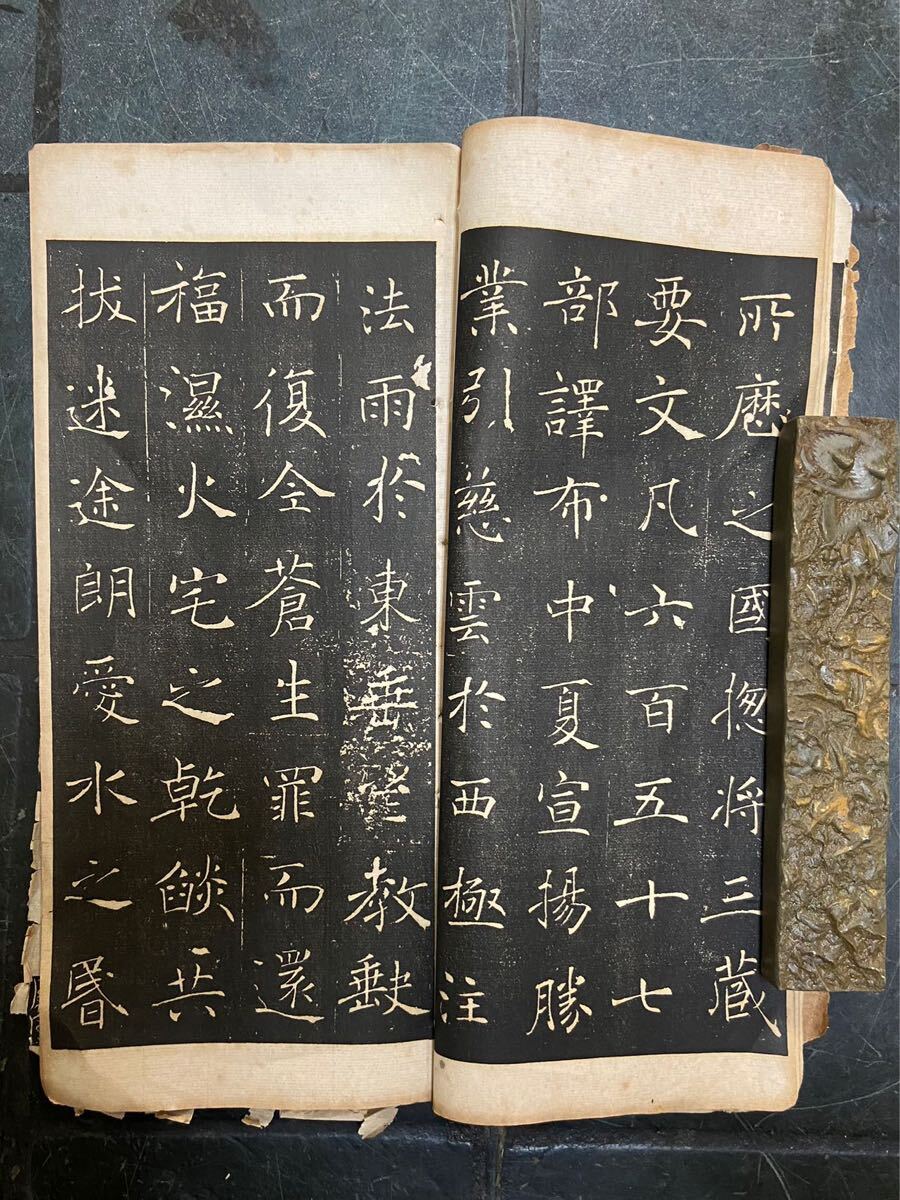 所歷之國揔將三藏
要文凡六百五十七
部譯布中夏宣揚勝
業引慈雲於西極注
法雨於東垂聖教缺
而復全蒼生罪而還
福濕火宅之乾燄共
拔迷途朗愛水之昬